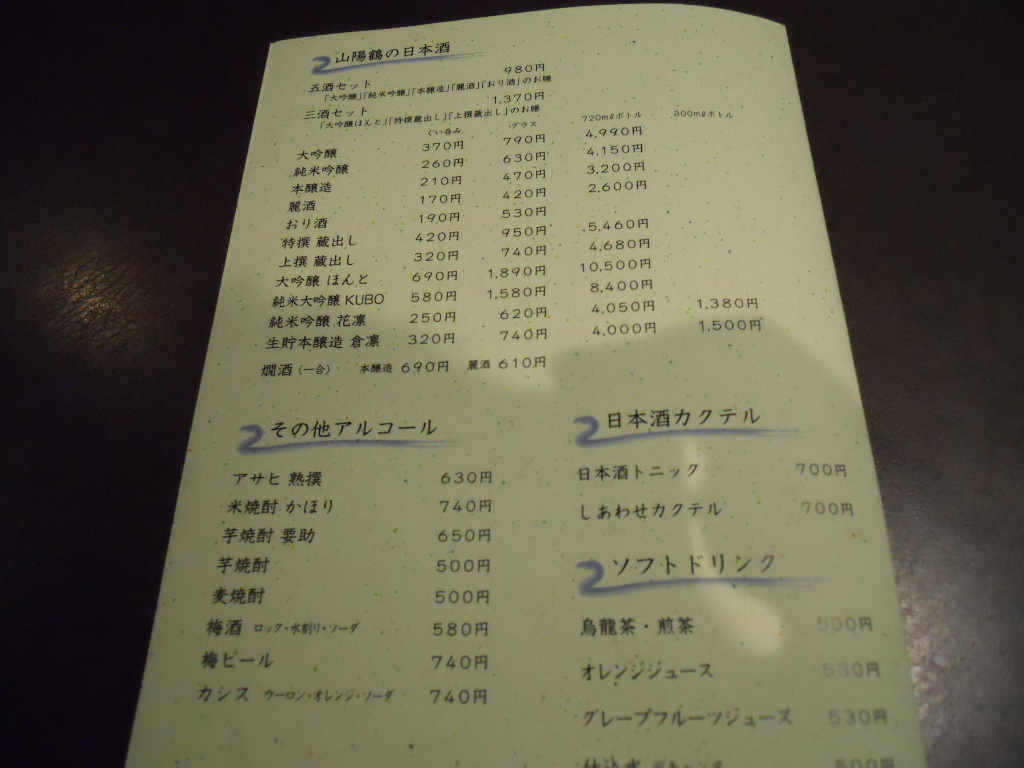 山陽鶴の日本酒
五酒セット 980円
「大吟醸」「純米吟醸」「本醸造」「麗酒」「おり酒」のお膳
三酒セット 1,370円
「大吟醸ほんと」「特撰蔵出し」「上撰蔵出し」のお膳
ぐい呑み グラス 720mℓボトル 300mℓボトル
大吟醸 370円 790円 4,990円
純米吟醸 260円 630円 4,150円
本醸造 210円 470円 3,200円
麗酒 170円 420円 2,600円
おり酒 190円 530円
特撰 蔵出し 420円 950円 5,460円
上撰 蔵出し 320円 740円 4,680円
大吟醸 ほんと 690円 1,890円 10,500円
純米大吟醸 KUBO 580円 1,580円 8,400円
純米吟醸 花凛 250円 620円 4,050円 1,380円
生貯本醸造 倉凛 320円 740円 4,000円 1,500円
燗酒(一合) 本醸造 690円 麗酒 610円
その他アルコール
アサヒ 熟撰 630円
米焼酎 かほり 740円
芋焼酎 要助 650円
芋焼酎 500円
麦焼酎 500円
梅酒 ロック・水割り・ソーダ 580円
梅ビール 740円
カシス ウーロン・オレンジ・ソーダ 740円
日本酒カクテル
日本酒トニック 700円
しあわせカクテル 700円
ソフトドリンク
烏龍茶・煎茶 500円
オレンジジュース 530円
グレープフルーツジュース 530円
仕込水 500円